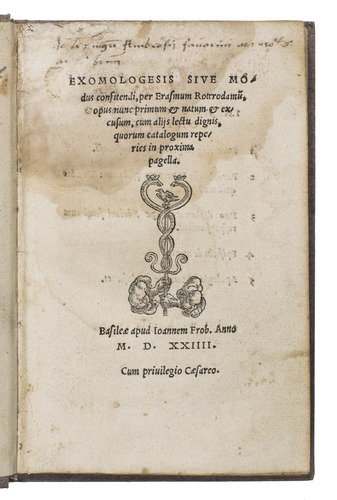 EXOMOLOGESIS SIVE MO⸗
dus confitendi, per Erasmum Roterodamũ,
opus nunc primum & natum & ex⸗
cusum, cum alijs lectu dignis,
quorum catalogum repe⸗
ries in proxima
pagella.
Basileæ apud Ioannem Frob. Anno
M. D. XXIIII.
Cum priuilegio Cæsareo.